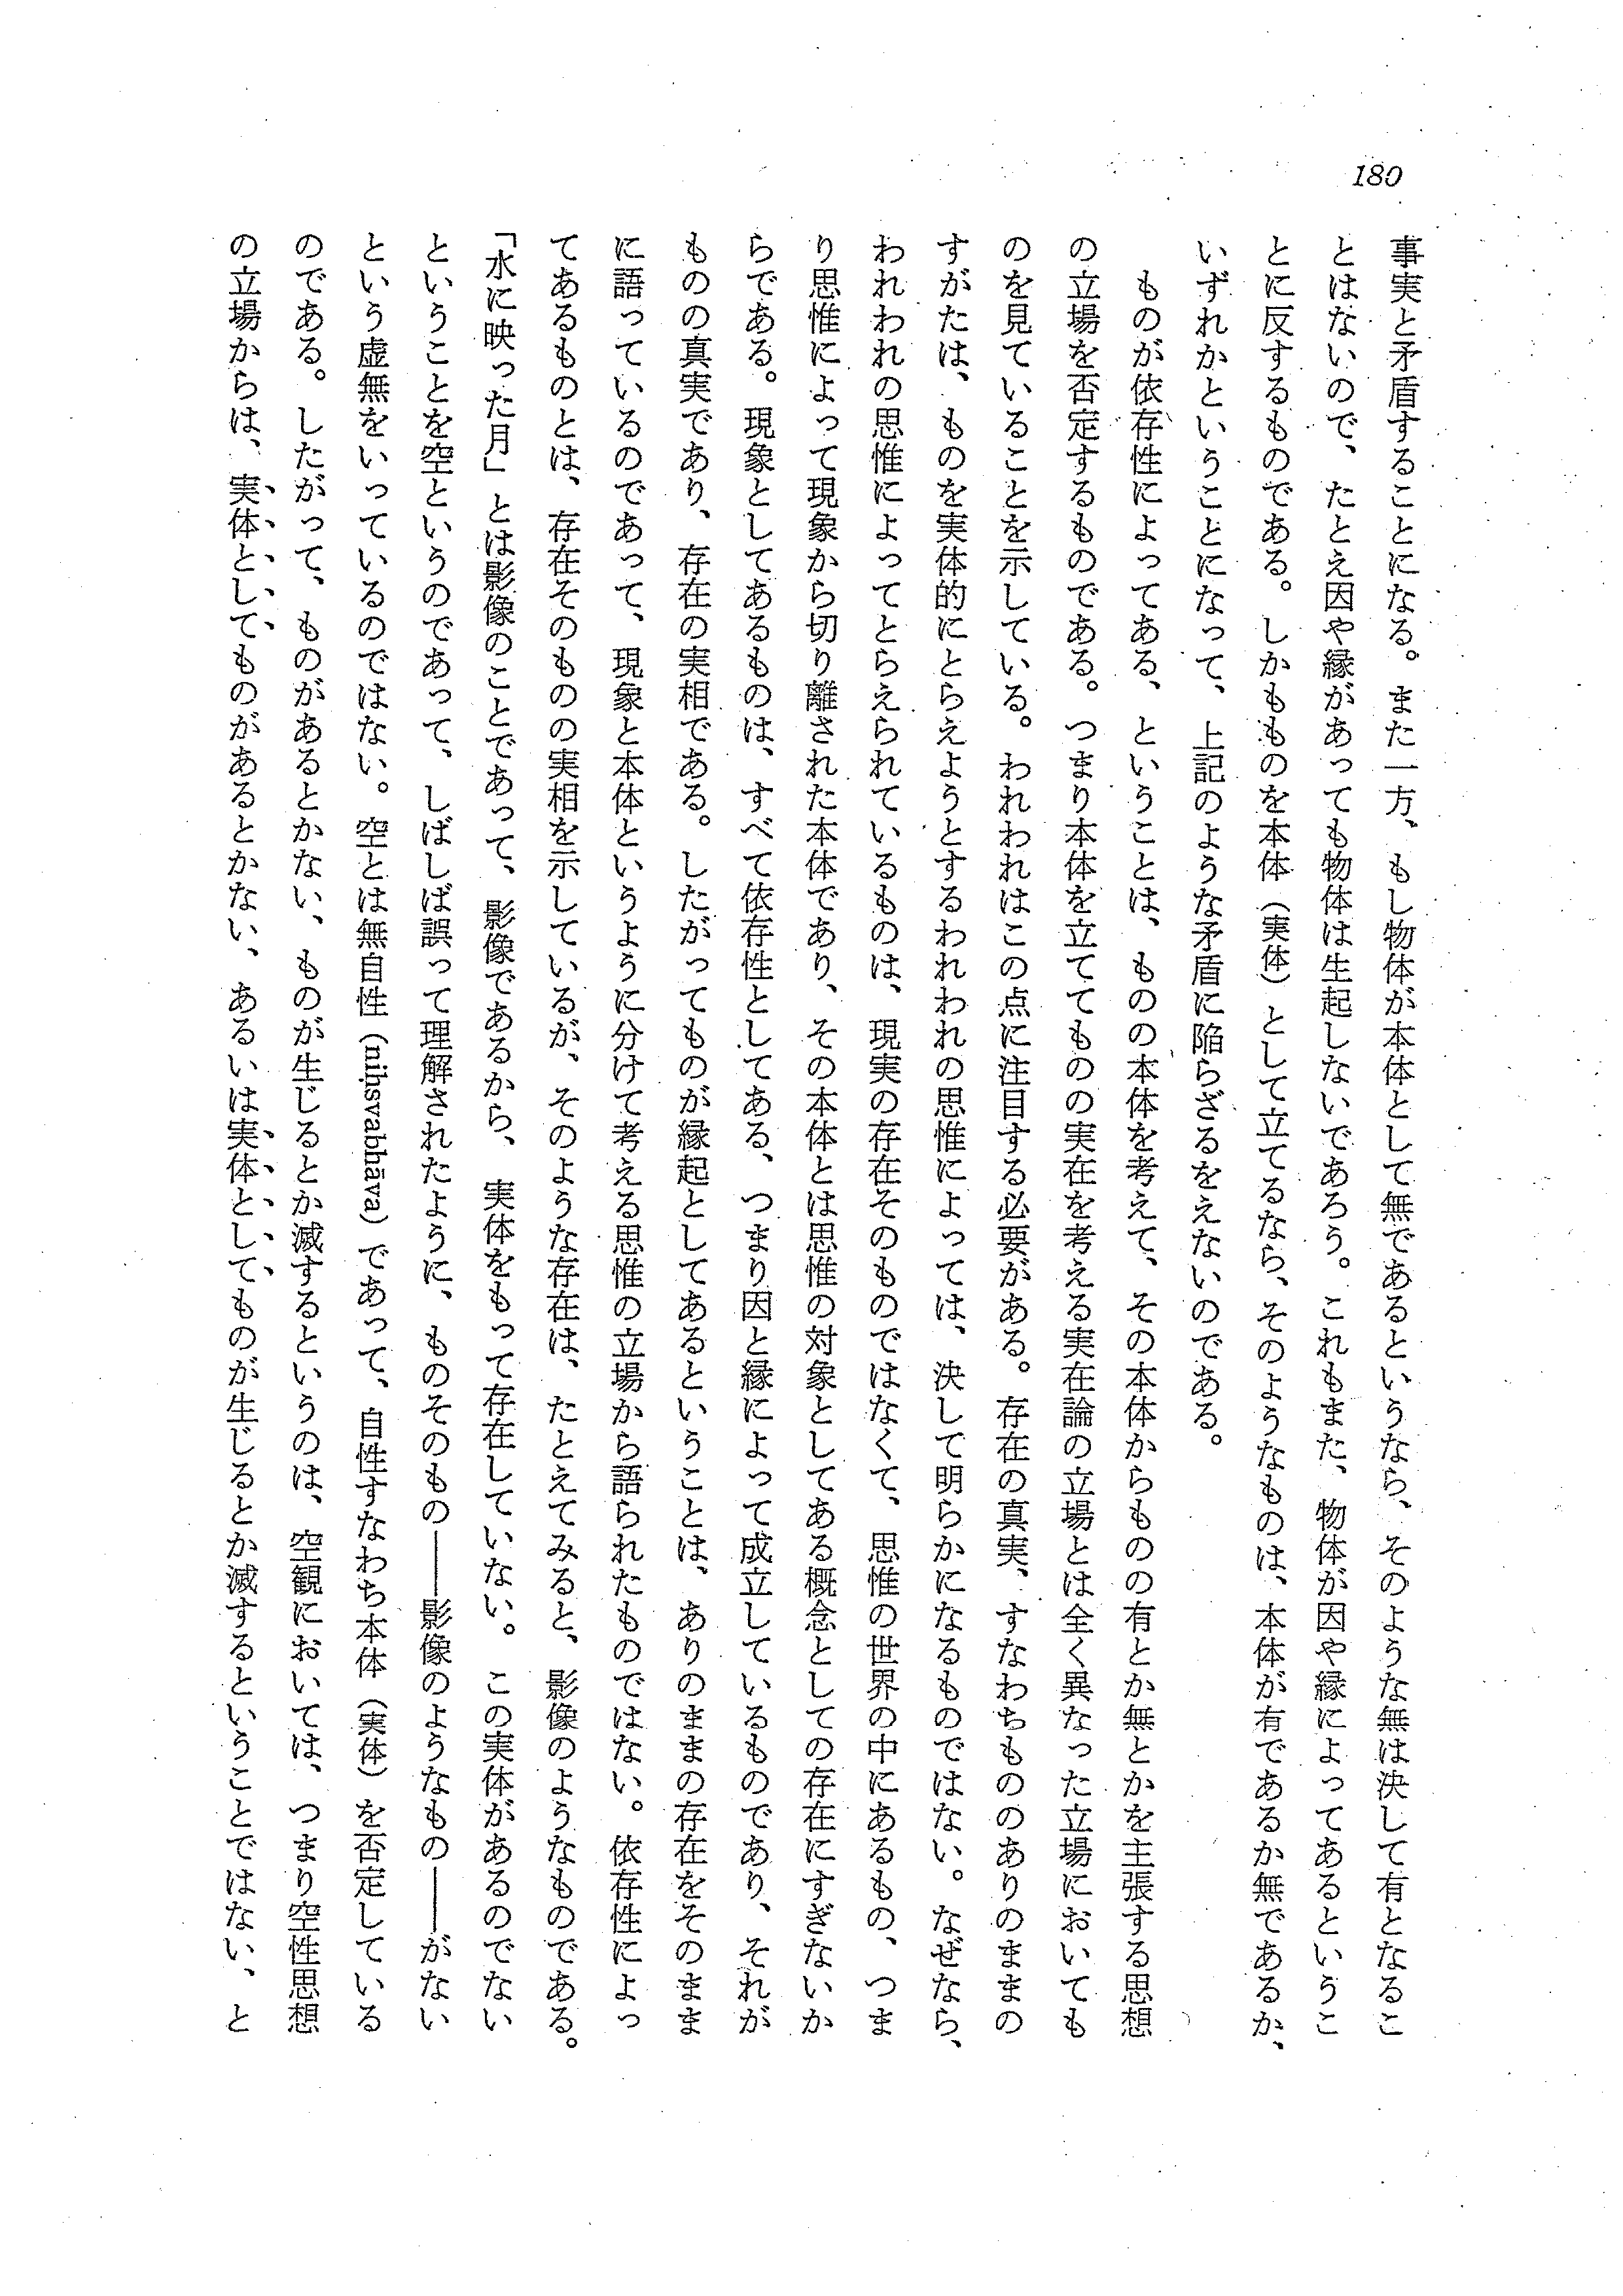 180
事実と矛盾することになる。また一方、もし物体が本体として無であるというなら、そのような無は決して有となるこ
とはないので、たとえ因や縁があっても物体は生起しないであろう。これもまた、物体が因や縁によってあるというこ
とに反するものである。しかもものを本体（実体）として立てるなら、そのようなものは、本体が有であるか無であるか、
いずれかということになって、上記のような矛盾に陥らざるをえないのである。
ものが依存性によってある、ということは、ものの本体を考えて、その本体からものの有とか無とかを主張する思想
の立場を否定するものである。つまり本体を立ててものの実在を考える実在論の立場とは全く異なった立場においても
のを見ていることを示している。われわれはこの点に注目する必要がある。存在の真実、すなわちもののありのままの
すがたは、ものを実体的にとらえようとするわれわれの思惟によっては、決して明らかになるものではない。なぜなら、
われわれの思惟によってとらえられているものは、現実の存在そのものではなくて、思惟の世界の中にあるもの、つま
り思惟によって現象から切り離された本体であり、その本体とは思惟の対象としてある概念としての存在にすぎないか
らである。現象としてあるものは、すべて依存性としてある、つまり因と縁によって成立しているものであり、それが
ものの真実であり、存在の実相である。したがってものが縁起としてあるということは、ありのままの存在をそのまま
に語っているのであって、現象と本体というように分けて考える思惟の立場から語られたものではない。依存性によっ
てあるものとは、存在そのものの実相を示しているが、そのような存在は、たとえてみると、影像のようなものである。
「水に映った月」とは影像のことであって、影像であるから、実体をもって存在していない。この実体があるのでない
ということを空というのであって、しばしば誤って理解されたように、ものそのもの――影像のようなもの――がない
という虚無をいっているのではない。空とは無自性（niḥsvabhāva）であって、自性すなわち本体（実体）を否定している
のである。したがって、ものがあるとかない、ものが生じるとか滅するというのは、空観においては、つまり空性思想
の立場からは、実体としてものがあるとかない、あるいは実体としてものが生じるとか滅するということではない、と